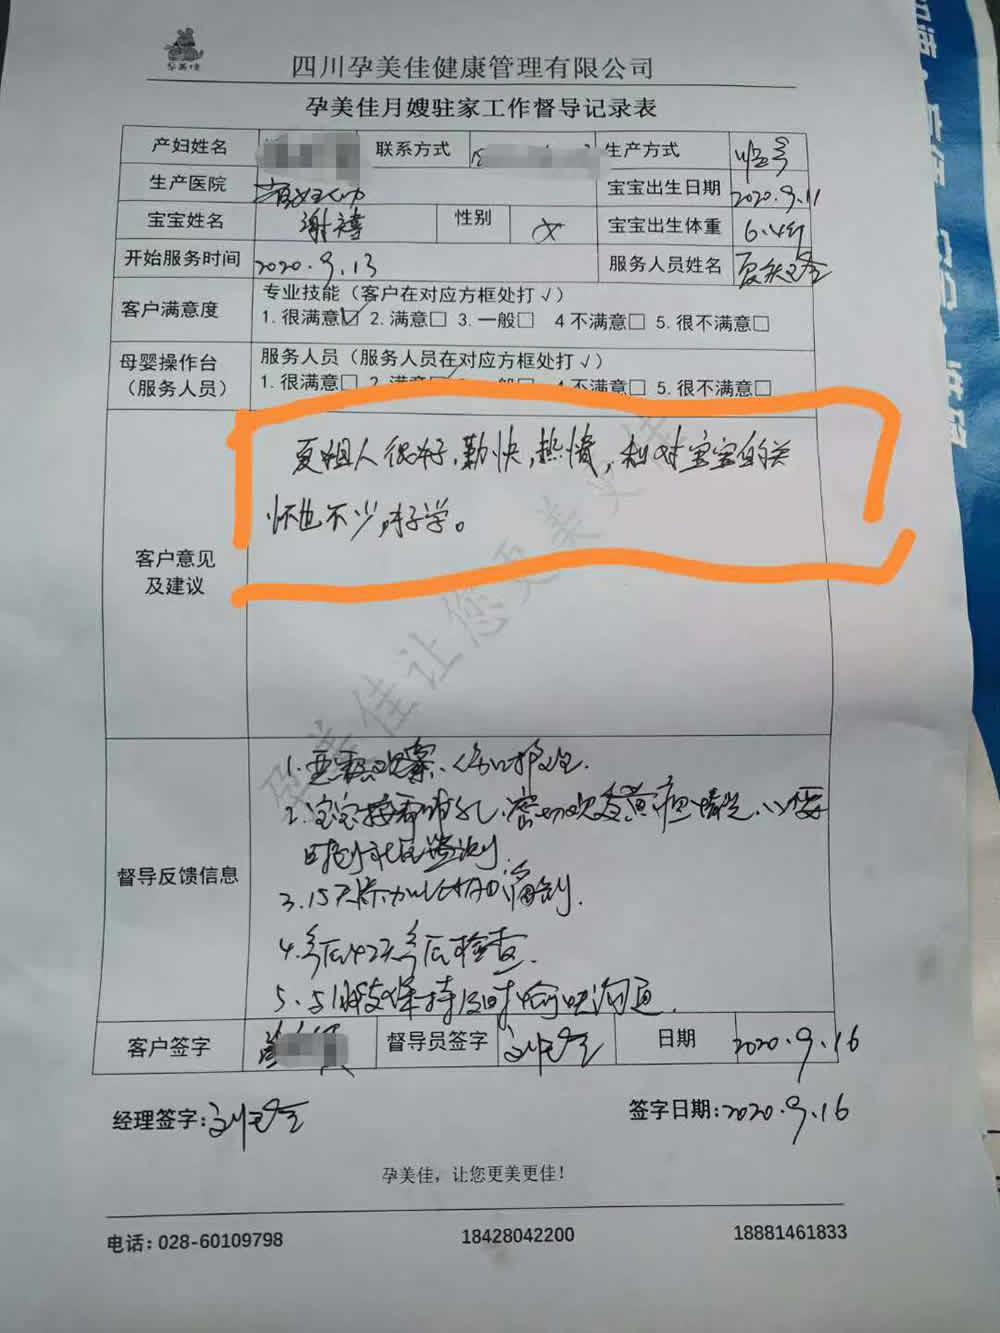 孕美佳
四川孕美佳健康管理有限公司
孕美佳月嫂驻家工作督导记录表
产妇姓名 联系方式 生产方式
生产医院 宝宝出生日期 2020.9.11
宝宝姓名 谢 性别 女 宝宝出生体重 6.4斤
开始服务时间 2020.9.13 服务人员姓名
客户满意度 专业技能（客户在对应方框处打√）
1.很满意☑ 2.满意□ 3.一般□ 4不满意□ 5.很不满意□
母婴操作台（服务人员） 服务人员（服务人员在对应方框处打√）
1.很满意□ 2.满意 一般□ 4.不满意□ 5.很不满意□
夏姐人很好,勤快,热情,和对宝宝的关
怀也不少,好学。
客户意见
及建议
孕美佳让您更美更佳
1. 观察、伤口护理.
2.宝宝按需哺乳、密切观察黄疸情况,必要
时到社区监测.
督导反馈信息
3.15天
4.产后42天产后检查.
5.与 保持及时愉快沟通.
客户签字 督导员签字 日期 2020.9.16
经理签字: 签字日期:2020.9.16
孕美佳，让您更美更佳!
电话:028-60109798 18428042200 18881461833